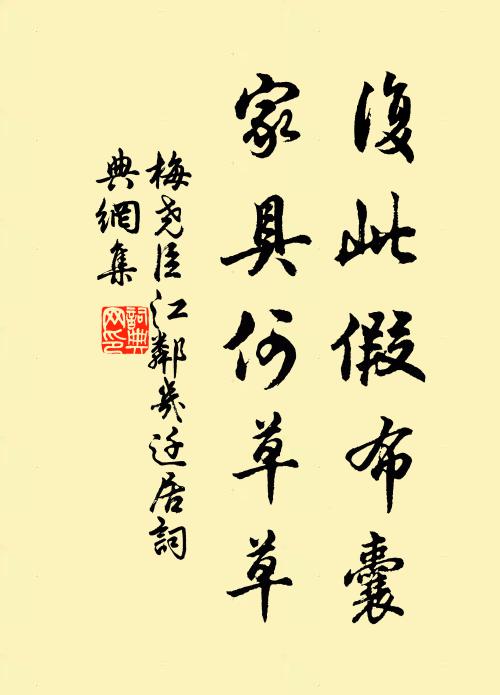 復此假布囊
家具何草草
梅尧臣江鄰幾迁居詞
典網集
詞典
网印